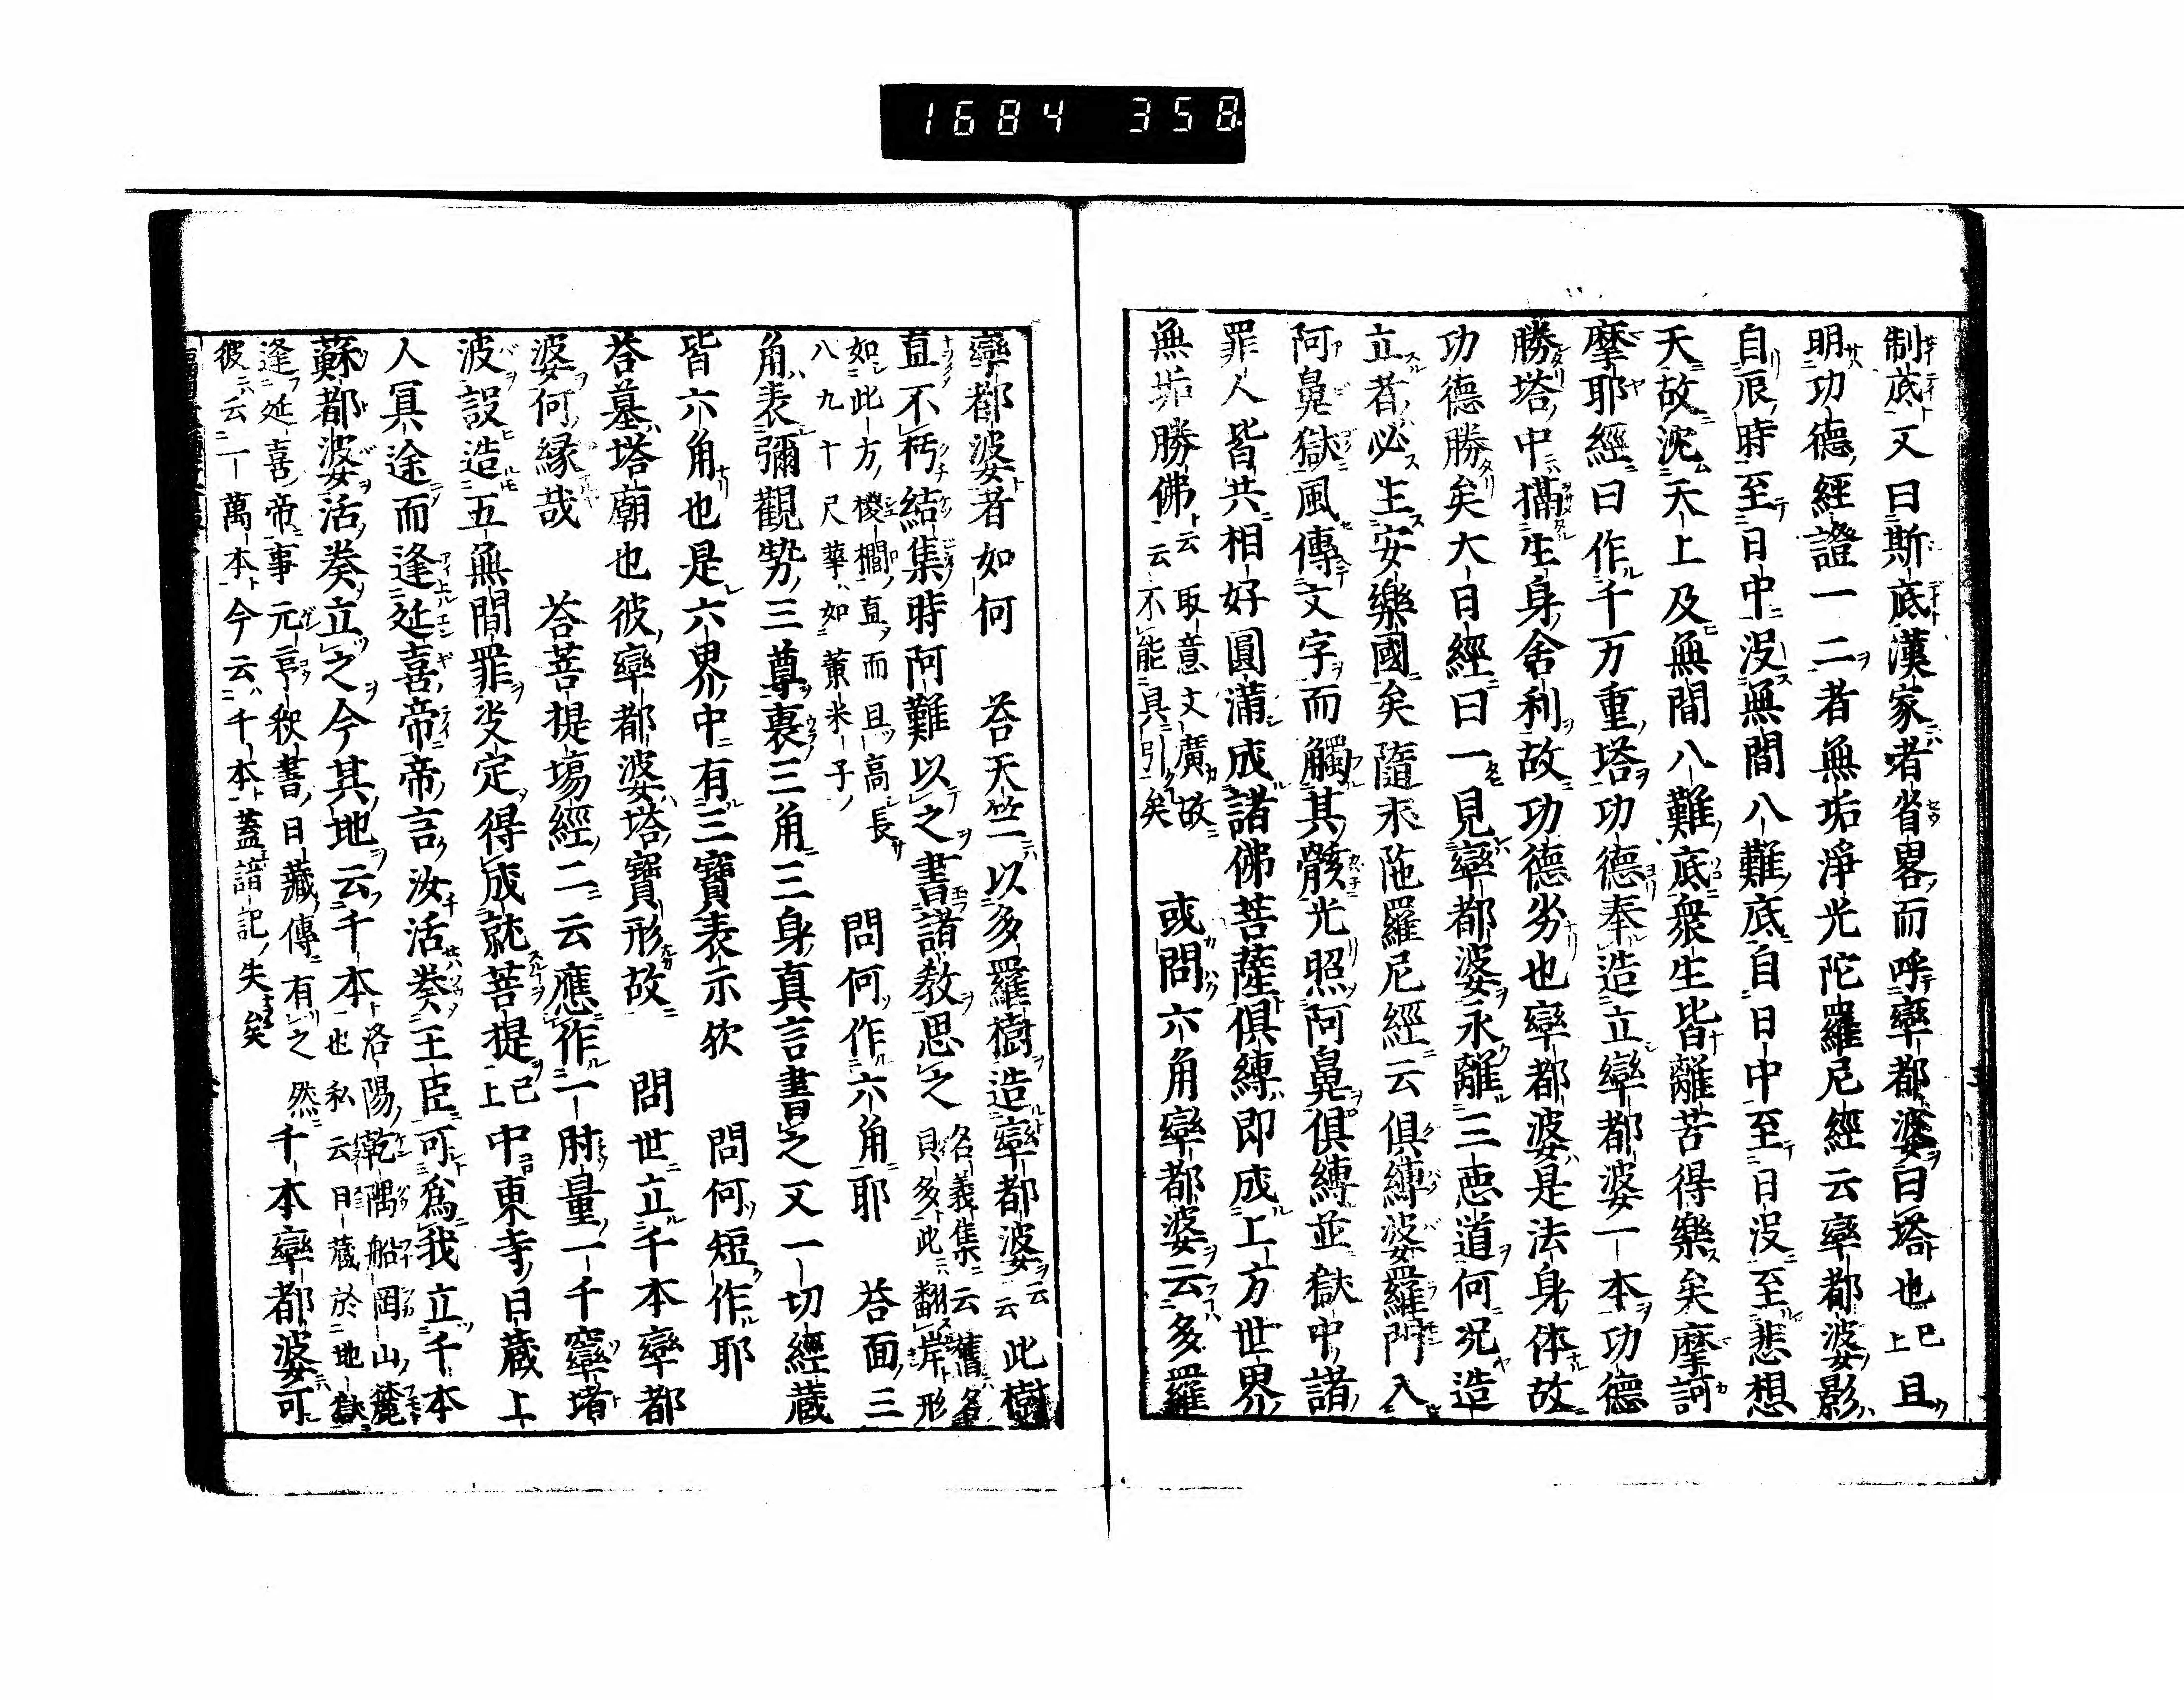 1684 358
制底又曰斯底漢家者省畧而呼窣都婆曰塔也已上且
明功德經證一二者無垢淨光陀羅尼經云窣都波婆影
自辰時至日中沒無間八難底自日中至日沒至悲想
天故沈天上及無間八難底衆生皆離苦得樂矣摩訶
摩耶經曰作千万重塔功德奉造立窣都婆一本功德
勝塔中滿生身舍利故功德劣也窣都婆是法身体故
功德勝矣大日經曰一見窣都婆永離三悪道何况造
立者必生安樂國矣隨求陁羅尼經云俱縛婆羅門入
阿鼻獄風傳文字而觸其骸光照阿鼻俱縛並獄中諸
罪人皆共相好圓滿成諸佛菩薩俱縛即成上方世界
無垢勝佛云云取意文廣故不能具引矣 或問六角窣都婆云多羅
窣都婆者如何 荅天竺以多羅樹造窣都婆云云此樹
直不朽結集時阿難以之書諸教思之名義集云舊名貝多此翻岸形
如此方椶櫚直而且高長八九十尺華如黄米子 問何作六角耶 荅面三
角表彌觀勢三尊裏三角三身真言書之又一切經藏
皆六角也是六界中有三寶表示欤 問何短作耶
荅墓塔廟也彼窣都婆塔寶形故 問世立千本窣都
婆何縁哉 荅菩提場經二云應作一肘量一千窣堵
波設造五無間罪㳇定得成就菩提已上中東寺日藏上
人冥途而逢延喜帝帝言汝活葵王臣可爲我立千本
蘇都婆活葵立之今其地云千本也洛陽乾隅船岡山麓私云日藏於地獄
逢延喜帝事元亨釈書日藏傳有之然
彼云一萬本今云千本蓋諳記失矣 千本窣都婆可